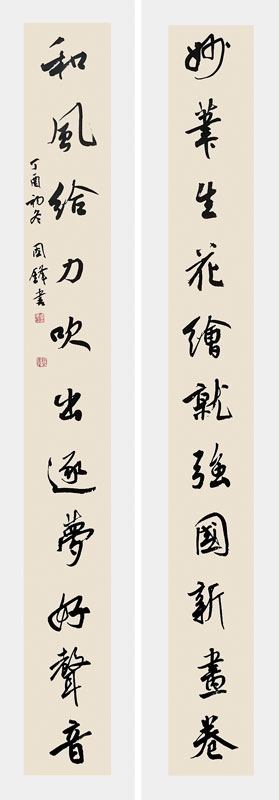 妙筆生花繪就强國新畫卷
和風給力吹出逐夢好聲音
丁酉初冬 周鋒書